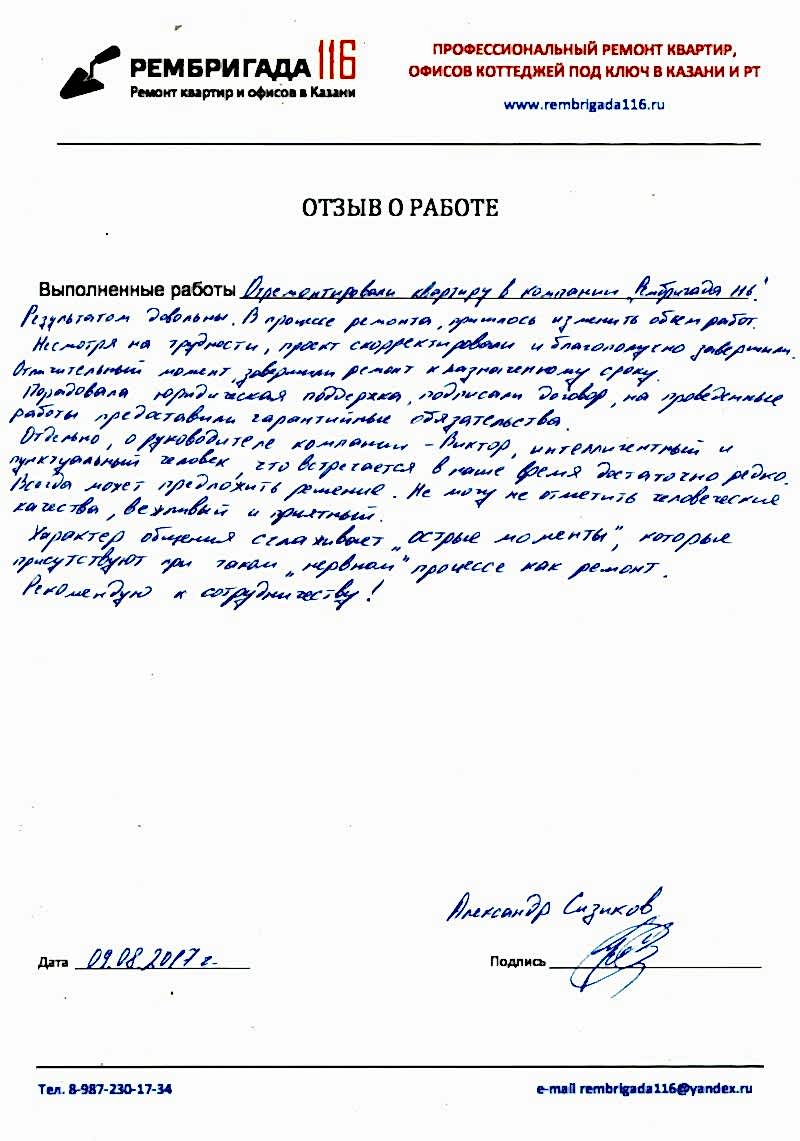 РЕМБРИГАДА 116
Ремонт квартир и офисов в Казани
ПРОФЕССИОНАЛЬНЫЙ РЕМОНТ КВАРТИР,
ОФИСОВ КОТТЕДЖЕЙ ПОД КЛЮЧ В КАЗАНИ И РТ
www.rembrigada116.ru
ОТЗЫВ О РАБОТЕ
Выполненные работы Отремонтировали квартиру в компании „Рембригада 116.“
Результатом довольны. В процессе ремонта, пришлось изменить объем работ.
Несмотря на трудности, проект скорректировали и благополучно завершили.
Отличительный момент, завершили ремонт к назначенному сроку.
Порадовала юридическая поддержка, подписали договор, на проведенные
работы предоставили гарантийные обязательства.
Отдельно, о руководителе компании – Виктор, интеллигентный и
пунктуальный человек, что встречается в наше время достаточно редко.
Всегда может предложить решение. Не могу не отметить человеческие
качества, вежливый и приятный.
Характер общения сглаживает „острые моменты“, которые
присутствуют при таком „нервном“ процессе как ремонт.
Рекомендую к сотрудничеству!
Александр Сизиков
Дата 09.08.2017 г.
Подпись
Тел. 8-987-230-17-34
e-mail rembrigada116@yandex.ru